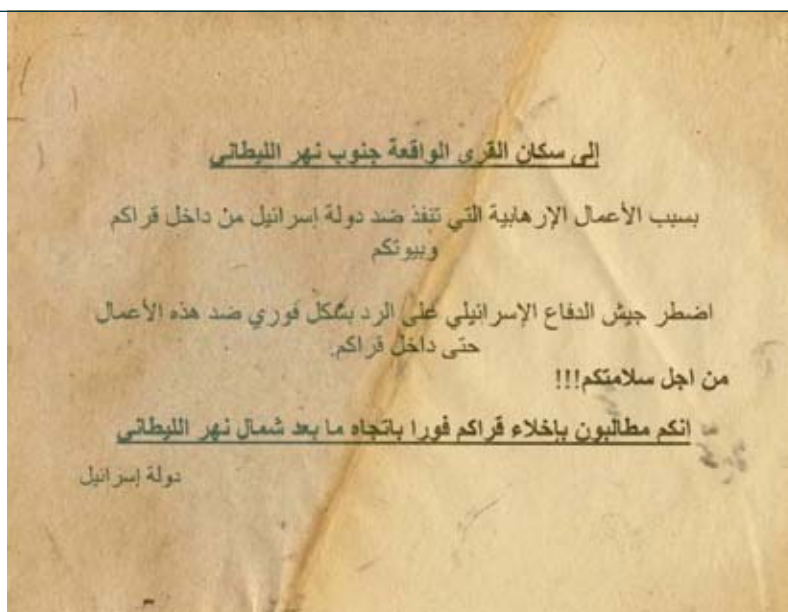 إلى سكان القرى الواقعة جنوب نهر الليطاني
بسبب الأعمال الإرهابية التي تنفذ ضد دولة إسرائيل من داخل قراكم
وبيوتكم
اضطر جيش الدفاع الإسرائيلي على الرد بشكل فوري ضد هذه الأعمال
حتى داخل قراكم.
من اجل سلامتكم!!!
انكم مطالبون بإخلاء قراكم فورا باتجاه ما بعد شمال نهر الليطاني
دولة إسرائيل